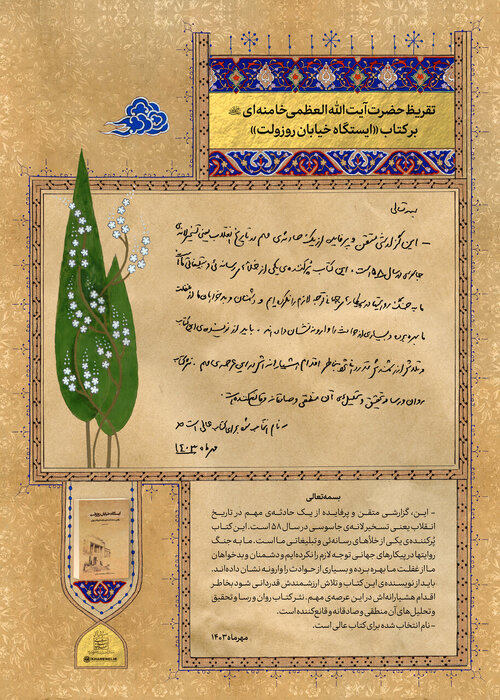 تقریظ حضرت آیت‌الله العظمی خامنه‌ای
بر کتاب «ایستگاه خیابان روزولت»
بسمه‌تعالی
- این گزارشی متقن و پرفایده از یک حادثه‌ی مهم در تاریخ انقلاب یعنی تسخیر لانه‌ی
جاسوسی در سال ۵۸ است. این کتاب پُرکننده‌ی یکی از خلأهای رسانه‌ئی و تبلیغاتی ما است.
ما به جنگ روایتها در پیکارهای جهانی توجه لازم را نکرده‌ایم و دشمنان و بدخواهان ما از غفلت
ما بهره برده و بسیاری از حوادث را وارونه نشان داده‌اند. باید از نویسنده‌ی این کتاب
و تلاش ارزشمندش قدردانی شود بخاطر اقدام هشیارانه‌اش در این عرصه‌ی مهم. نثر کتاب
روان و رسا و تحقیق و تحلیل‌های آن منطقی و صادقانه و قانع‌کننده است.
- نام انتخاب شده برای کتاب عالی است
مهرماه ۱۴۰۳
بسمه‌تعالی
- این، گزارشی متقن و پرفایده از یک حادثه‌ی مهم در تاریخ
انقلاب یعنی تسخیر لانه‌ی جاسوسی در سال ۵۸ است. این کتاب
پُرکننده‌ی یکی از خلأهای رسانه‌ئی و تبلیغاتی ما است. ما به جنگ
روایتها در پیکارهای جهانی توجه لازم را نکرده‌ایم و دشمنان و بدخواهان
ما از غفلت ما بهره برده و بسیاری از حوادث را وارونه نشان داده‌اند.
باید از نویسنده‌ی این کتاب و تلاش ارزشمندش قدردانی شود بخاطر
اقدام هشیارانه‌اش در این عرصه‌ی مهم. نثر کتاب روان و رسا و تحقیق
و تحلیل‌های آن منطقی و صادقانه و قانع‌کننده است.
- نام انتخاب شده برای کتاب عالی است.
مهرماه ۱۴۰۳
ایستگاه خیابان روزولت
KHAMENEI.IR